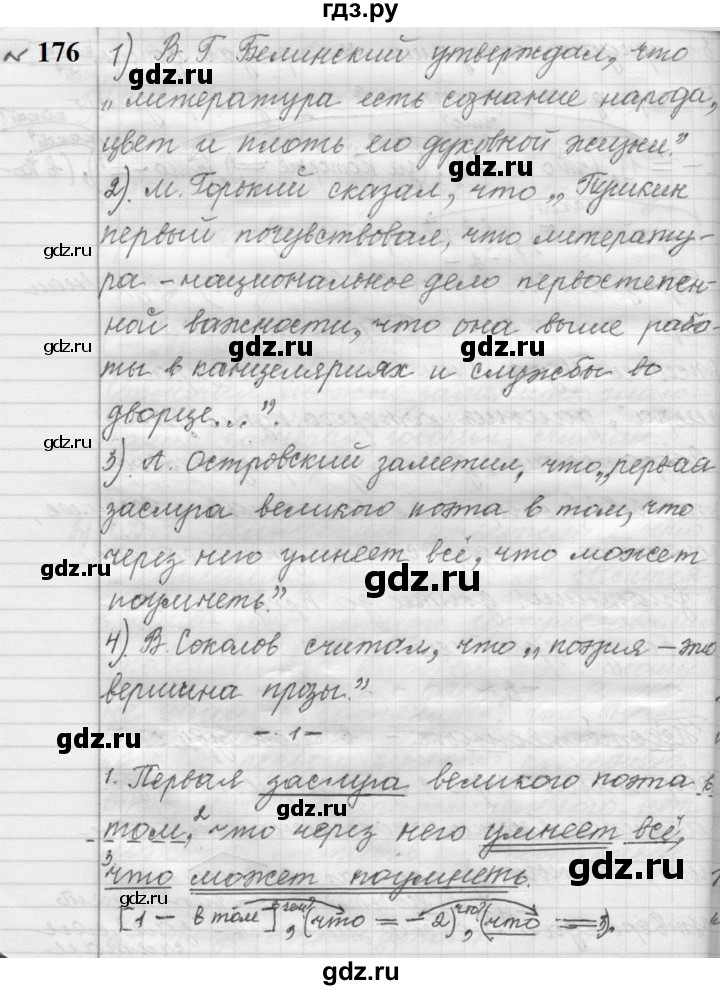 гдз.ру
№ 176 1) В. Г. Белинский утверждал, что
„литература есть сознание народа,
gdz.ru
цвет и плоть его духовной жизни.”
gdz.ru
2). М. Горький сказал, что „Пушкин
первый почувствовал, что литерату-
gdz.ru
ра – национальное дело первостепен-
ной важности, что она выше рабо-
gdz.ru gdz.ru
ты в канцеляриях и службы во
дворце...”.
gdz.ru
3). А. Островский заметил, что „первая
заслуга великого поэта в том, что
через него умнеет всё, что может
gdz.ru gdz.ru
поумнеть.”
4). В. Соколов считал, что „поэзия – это
вершина прозы.”
gdz.ru
– 1 –
1. Первая заслуга великого поэта в
gdz.ru
том, 2 что через него умнеет всё,
3 что может поумнеть.
gdz.ru
gdz.ru
[1 – в том], (что = – 2), (что = 3).
gdz.ru